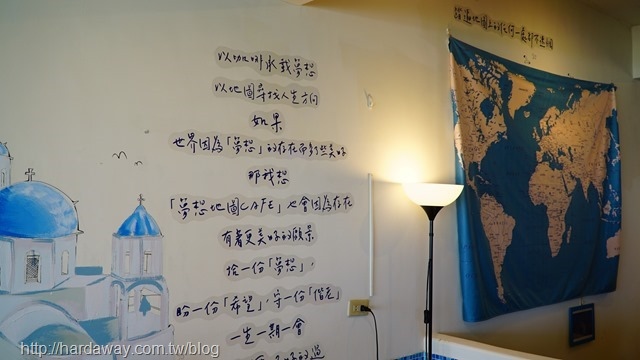 踏遍地圖上的任何一處都不迷惘
以咖啡承載夢想
以地圖尋找人生方向
如果
世界因為「夢想」的存在而多了些美好
那我想
「夢想地圖CAFE」也會因為存在
有著更美好的願景
拾一份「夢想」,
盼一份「希望」,守一份「信念」
一生一期一會
http://hardaway.com.tw/blog